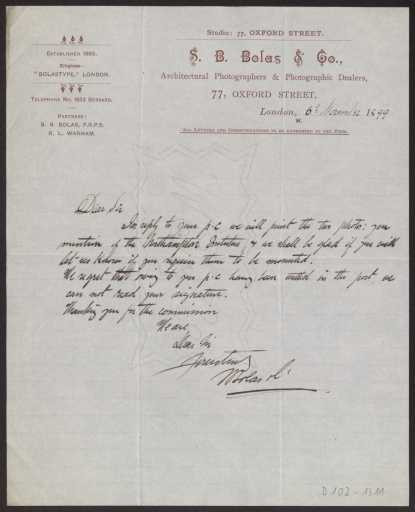 Studio: 77, OXFORD STREET.
S. B. Bolas & Co.,
Architectural Photographers & Photographic Dealers,
77, OXFORD STREET,
London, 6th November 1899
W.
ALL LETTERS AND COMMUNICATIONS TO BE ADDRESSED TO THE FIRM.
ESTABLISHED 1885.
Telephone
"BOLASTYPE," LONDON.
TELEPHONE No. 1602 GERRARD.
PARTNERS:
S. B. BOLAS, F.R.P.S.
R. L. WARHAM.
Dear Sir
In reply to your p.c we will print the two photos: you
mention of the Northampton Institute, & we shall be glad if you will
let us know if you require them to be mounted.
We regret that owing to your p.c having been wetted in the post we
can not read your signature.
Thanking you for the commission
We are
Dear Sir
Yours truly
S B Bolas & Co
D 102-1311